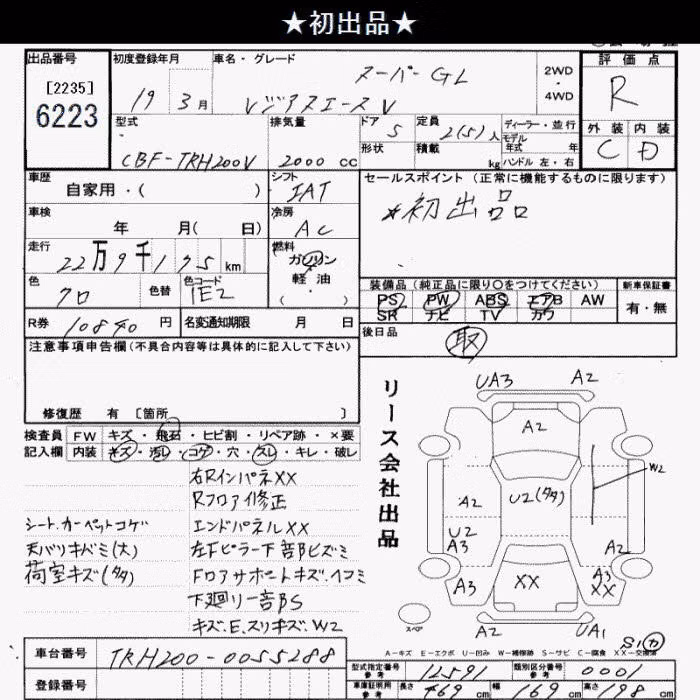 ★初出品★
出品番号 初度登録年月 車名・グレード 評価点
[2235]
6223
19年 3月 スーパーGL
レジアスエースV
2WD・4WD
R
型式 排気量 ドア 定員 ディーラー・並行
外装 内装
CBF-TRH200V 2000cc 5 2(5)人
モデル年式 年
形状 積載 kg ハンドル 左・右
C D
車歴 シフト セールスポイント (正常に機能するものに限ります)
自家用・( ) IAT
*初出品
車検 冷房
年 月( 日) AC
走行 燃料
22万9千175km ガソリン・軽油・( )
色 色替 色コード 装備品(純正品に限り○をつけてください) 新車保証書
クロ 1E2
PS PW ABS エアB AW 有・無
SR ナビ TV カワ
R券 10840円 名変通知期限 月 日
後日品 取
注意事項申告欄(不具合内容等は具体的に記入して下さい)
修復歴 有 [箇所 ]
検査員 FW キズ・飛石・ヒビ割・リペア跡・×要
記入欄 内装 キズ・汚レ・コゲ・穴・スレ・キレ・破レ
右RインパネXX
Rフロア修正
シート.カーペットコゲ エンドパネルXX
天バリキバミ(大) 左Fピラー下部ヒズミ
荷室キズ(タタ) Fロアサポートキズ.ヘコミ
下廻り一部S
キズ.E.スリキズ.W2
リース会社出品
UA3 A2
A2
W2
A2 U2(タタ)
U2
A3 A2
A3 XX A3
XX
スペア
A2 UA1
S1 カ
A-キズ E-エクボ U-凹み W-補修跡 S-サビ C-腐食 XX-交換済
車台番号 TRH200-0055288
登録番号
型式指定番号 参考 12591 類別区分番号 参考 0001
車庫証明用 参考 長さ 469cm 幅 169cm 高さ 198cm